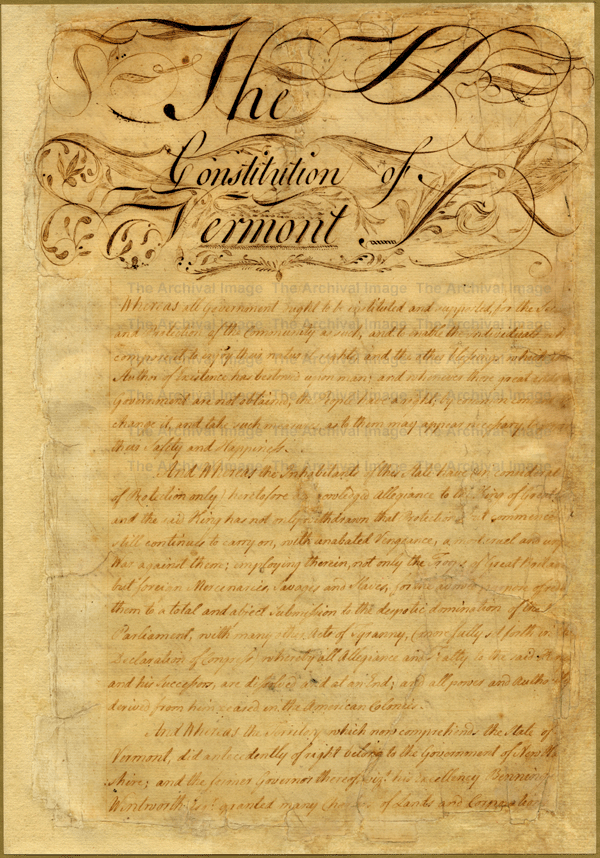 The
Constitution of
Vermont
The Archival Image The Archival Image The Archival Image
Whereas all Government ought to be instituted and supported, for the
and Protection of the Community as such, and to enable the Individuals
compose it, to enjoy their natural rights, and the other blessings which the
Author of Existence has bestowed upon man; and whenever those great
Government are not obtained, the People have a right, by common
change it, and take such measures, as to them may appear necessary
their Safety and Happiness.
And Whereas the Inhabitants of this State have in
of Protection only heretofore acknowledged allegiance to the King of Great
and the said King has not only withdrawn that Protection but
still continues to carry on, with unabated Vengeance, a most cruel and
War against them; employing therein, not only the Troops of Great Britain
but foreign Mercenaries, Savages and Slaves, for the avowed purpose of
them to a total and abject Submission to the despotic domination of the
Parliament, with many other Acts of Tyranny, (more fully set forth in the
Declaration of Congress) whereby all Allegiance and Fealty to the said King
and his Successors, are dissolved and at an End; and all powers and Authority
derived from him, ceased in the American Colonies.
And Whereas the Territory, which now comprehends the State of
Vermont, did antecedently of right belong to the Government of New
shire; and the former Governor thereof, viz. his Excellency Benning
Wentworth Esqr. granted many Charters of Lands and